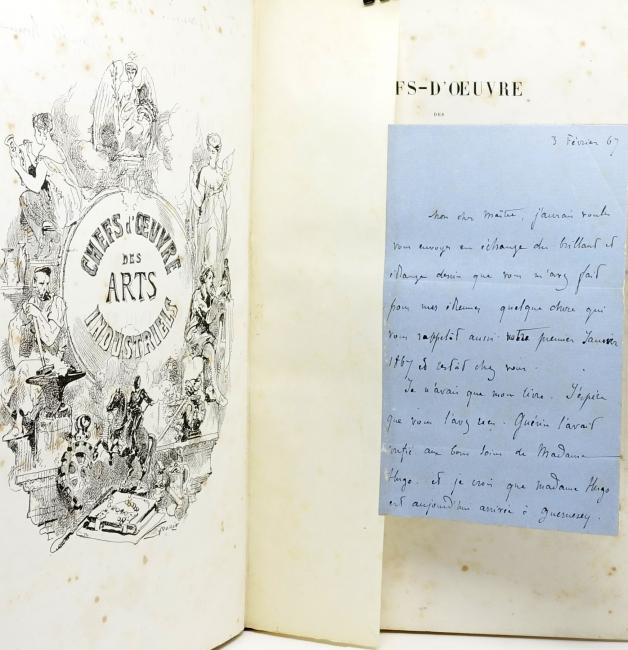 CHEFS d'ŒUVRE
DES
ARTS
INDUSTRIELS
FS-D'ŒUVRE
DES
3 Février 67
Mon cher Maître, j'aurais voulu
vous envoyer en échange du brillant et
étrange dessin que vous m'avez fait
pour mes étrennes quelque chose qui
vous rappelât aussi notre premier Janvier
1867 et restât chez vous.
Je n'avais que mon livre. J'espère
que vous l'avez reçu. Guérin l'avait
confié aux bons soins de Madame
Hugo. et je crois que madame Hugo
est aujourd'hui arrivée à Guernesey.